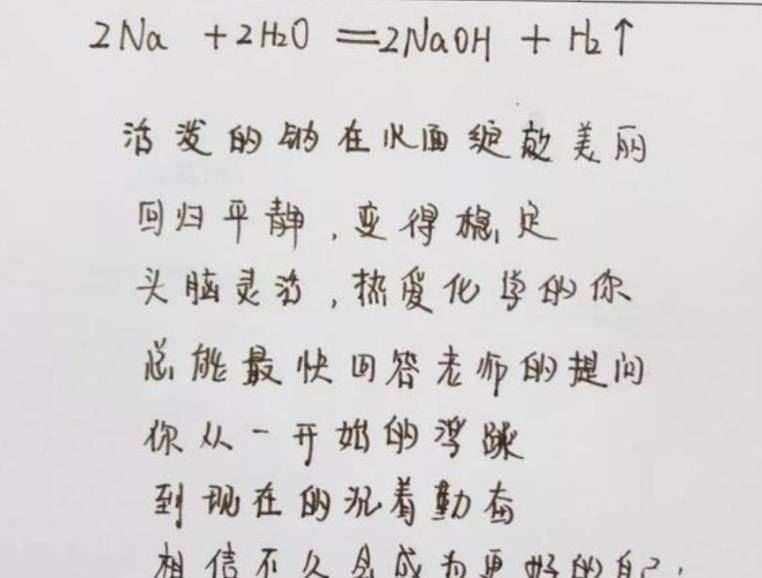 2Na +2H2O =2NaOH + H2↑
活泼的钠在水面绽放美丽
回归平静，变得稳定
头脑灵活，热爱化学的你
总能最快回答老师的提问
你从一开始的浮躁
到现在的沉着勤奋
相信不久会成为更好的自己，